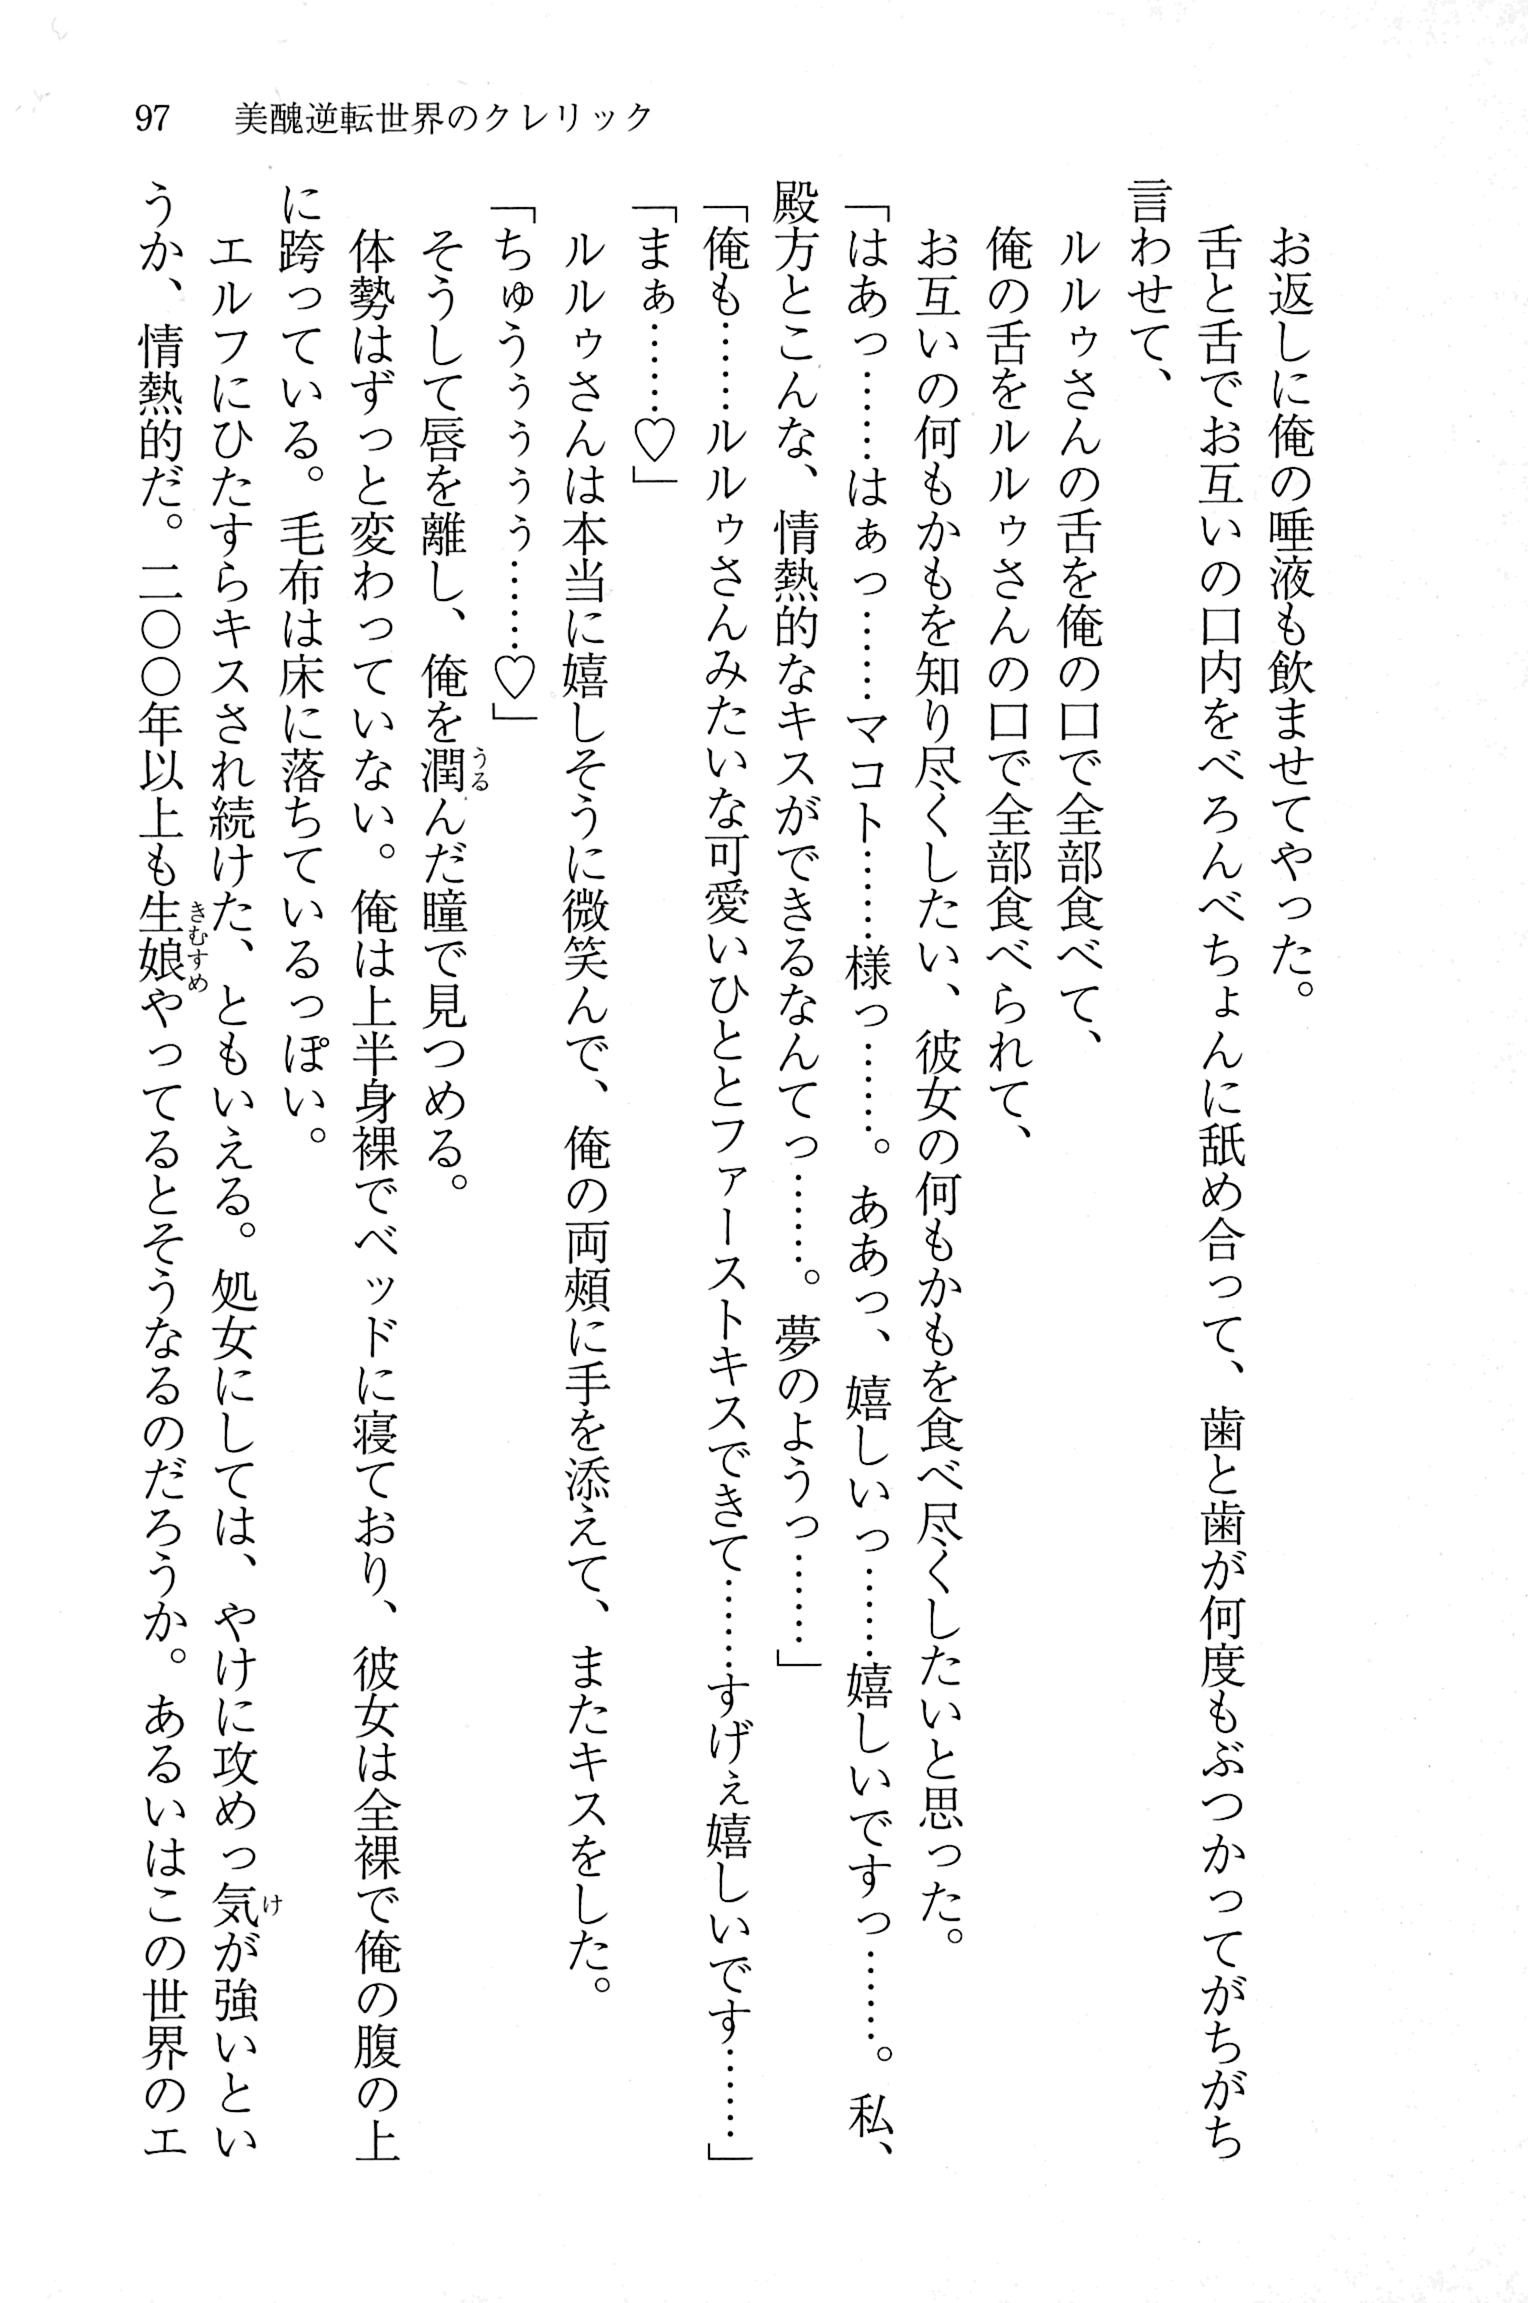 97　美醜逆転世界のクレリック
お返しに俺の唾液も飲ませてやった。
舌と舌でお互いの口内をべろんべちょんに舐め合って、歯と歯が何度もぶつかってがちがち
言わせて、
ルルゥさんの舌を俺の口で全部食べて、
俺の舌をルルゥさんの口で全部食べられて、
お互いの何もかもを知り尽くしたい、彼女の何もかもを食べ尽くしたいと思った。
「はあっ……はぁっ……マコト……様っ……。ああっ、嬉しいっ……嬉しいですっ……。私、
殿方とこんな、情熱的なキスができるなんてっ……。夢のようっ……」
「俺も……ルルゥさんみたいな可愛いひととファーストキスできて……すげぇ嬉しいです……」
「まぁ……♡」
ルルゥさんは本当に嬉しそうに微笑んで、俺の両頰に手を添えて、またキスをした。
「ちゅうぅぅぅぅ……♡」
そうして唇を離し、俺を潤んだ瞳で見つめる。
体勢はずっと変わっていない。俺は上半身裸でベッドに寝ており、彼女は全裸で俺の腹の上
に跨っている。毛布は床に落ちているっぽい。
エルフにひたすらキスされ続けた、ともいえる。処女にしては、やけに攻めっ気が強いとい
うか、情熱的だ。二〇〇年以上も生娘やってるとそうなるのだろうか。あるいはこの世界のエ